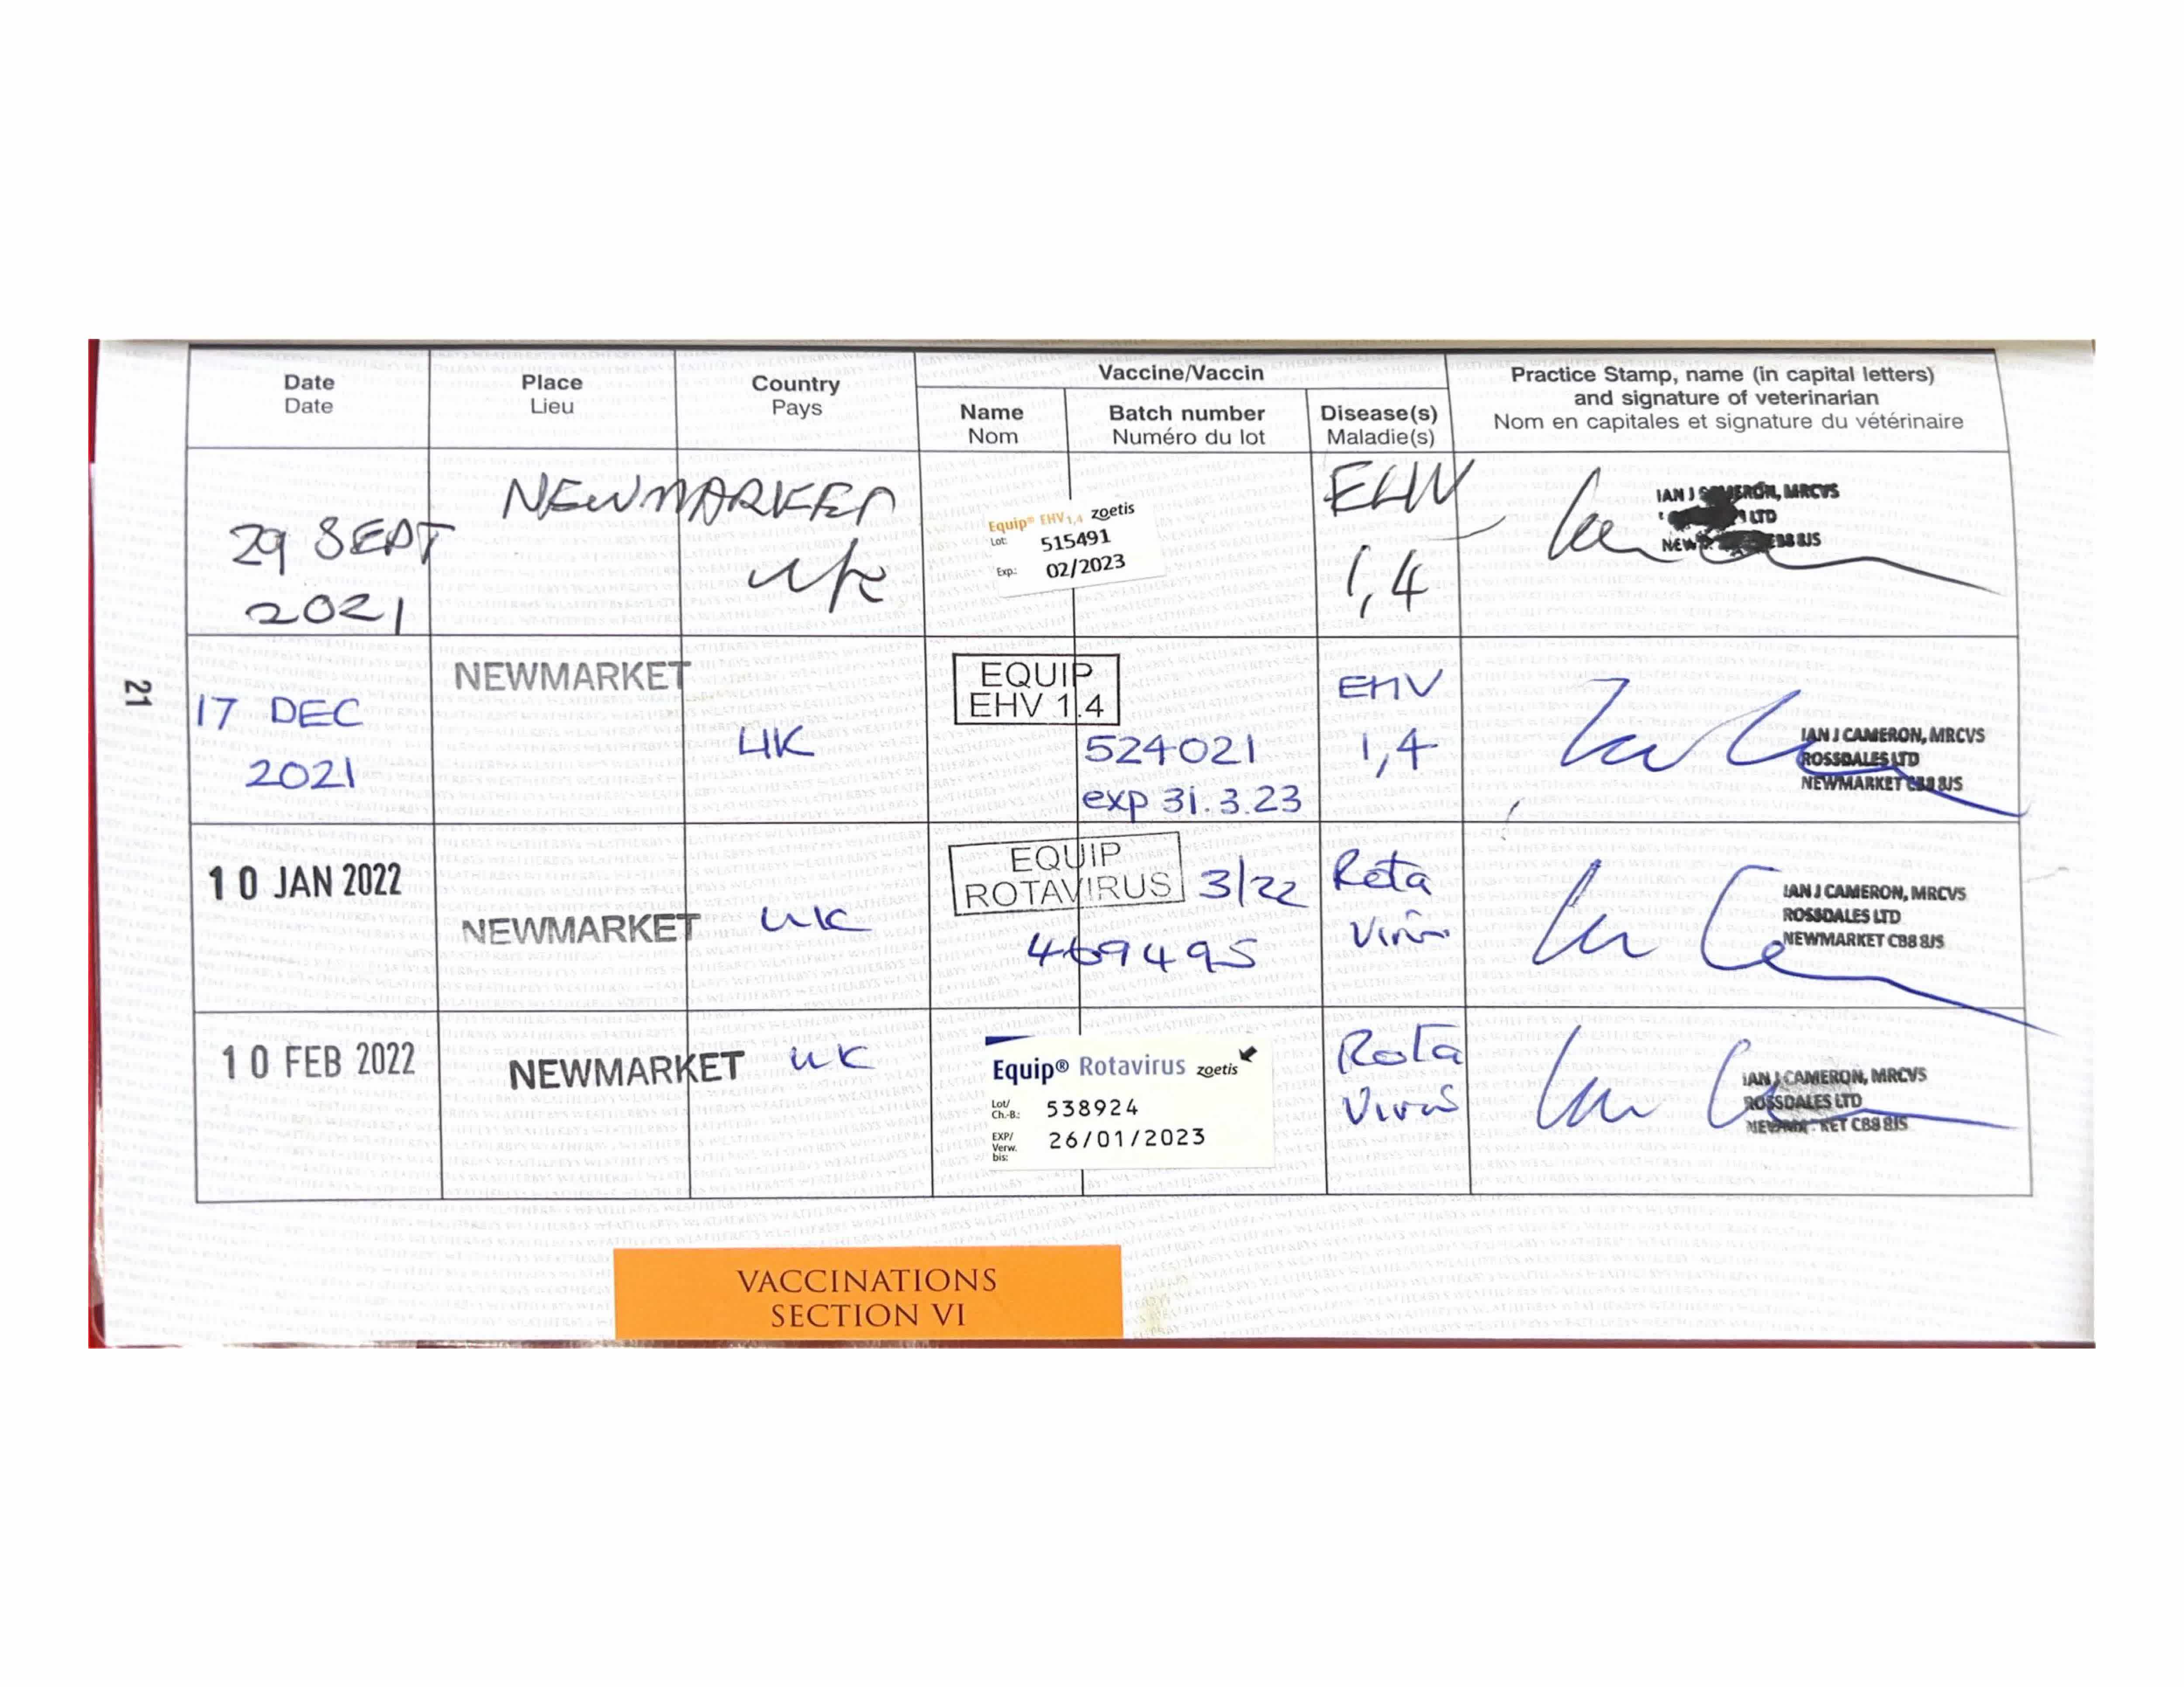 Date
Date
Place
Lieu
Country
Pays
Vaccine/Vaccin
Name
Nom
Batch number
Numéro du lot
Disease(s)
Maladie(s)
Practice Stamp, name (in capital letters)
and signature of veterinarian
Nom en capitales et signature du vétérinaire
29 SEPT
2021
NEWMARKET
UK
Equip® EHV1,4 zoetis
Lot: 515491
Exp.: 02/2023
EHV
1,4
IAN J CAMERON, MRCVS
LTD
CB8 8JS
17 DEC
2021
NEWMARKET
UK
EQUIP
EHV 1.4
524021
exp 31.3.23
EHV
1,4
IAN J CAMERON, MRCVS
ROSSDALES LTD
NEWMARKET CB8 8JS
10 JAN 2022
NEWMARKET
UK
EQUIP
ROTAVIRUS
3/22
469495
Rota
Virus
IAN J CAMERON, MRCVS
ROSSDALES LTD
NEWMARKET CB8 8JS
10 FEB 2022
NEWMARKET
UK
Equip® Rotavirus zoetis
Lot/
Ch.-B.: 538924
EXP/
Verw.
bis: 26/01/2023
Rota
Virus
IAN J CAMERON, MRCVS
ROSSDALES LTD
NEWMARKET CB8 8JS
21
VACCINATIONS
SECTION VI